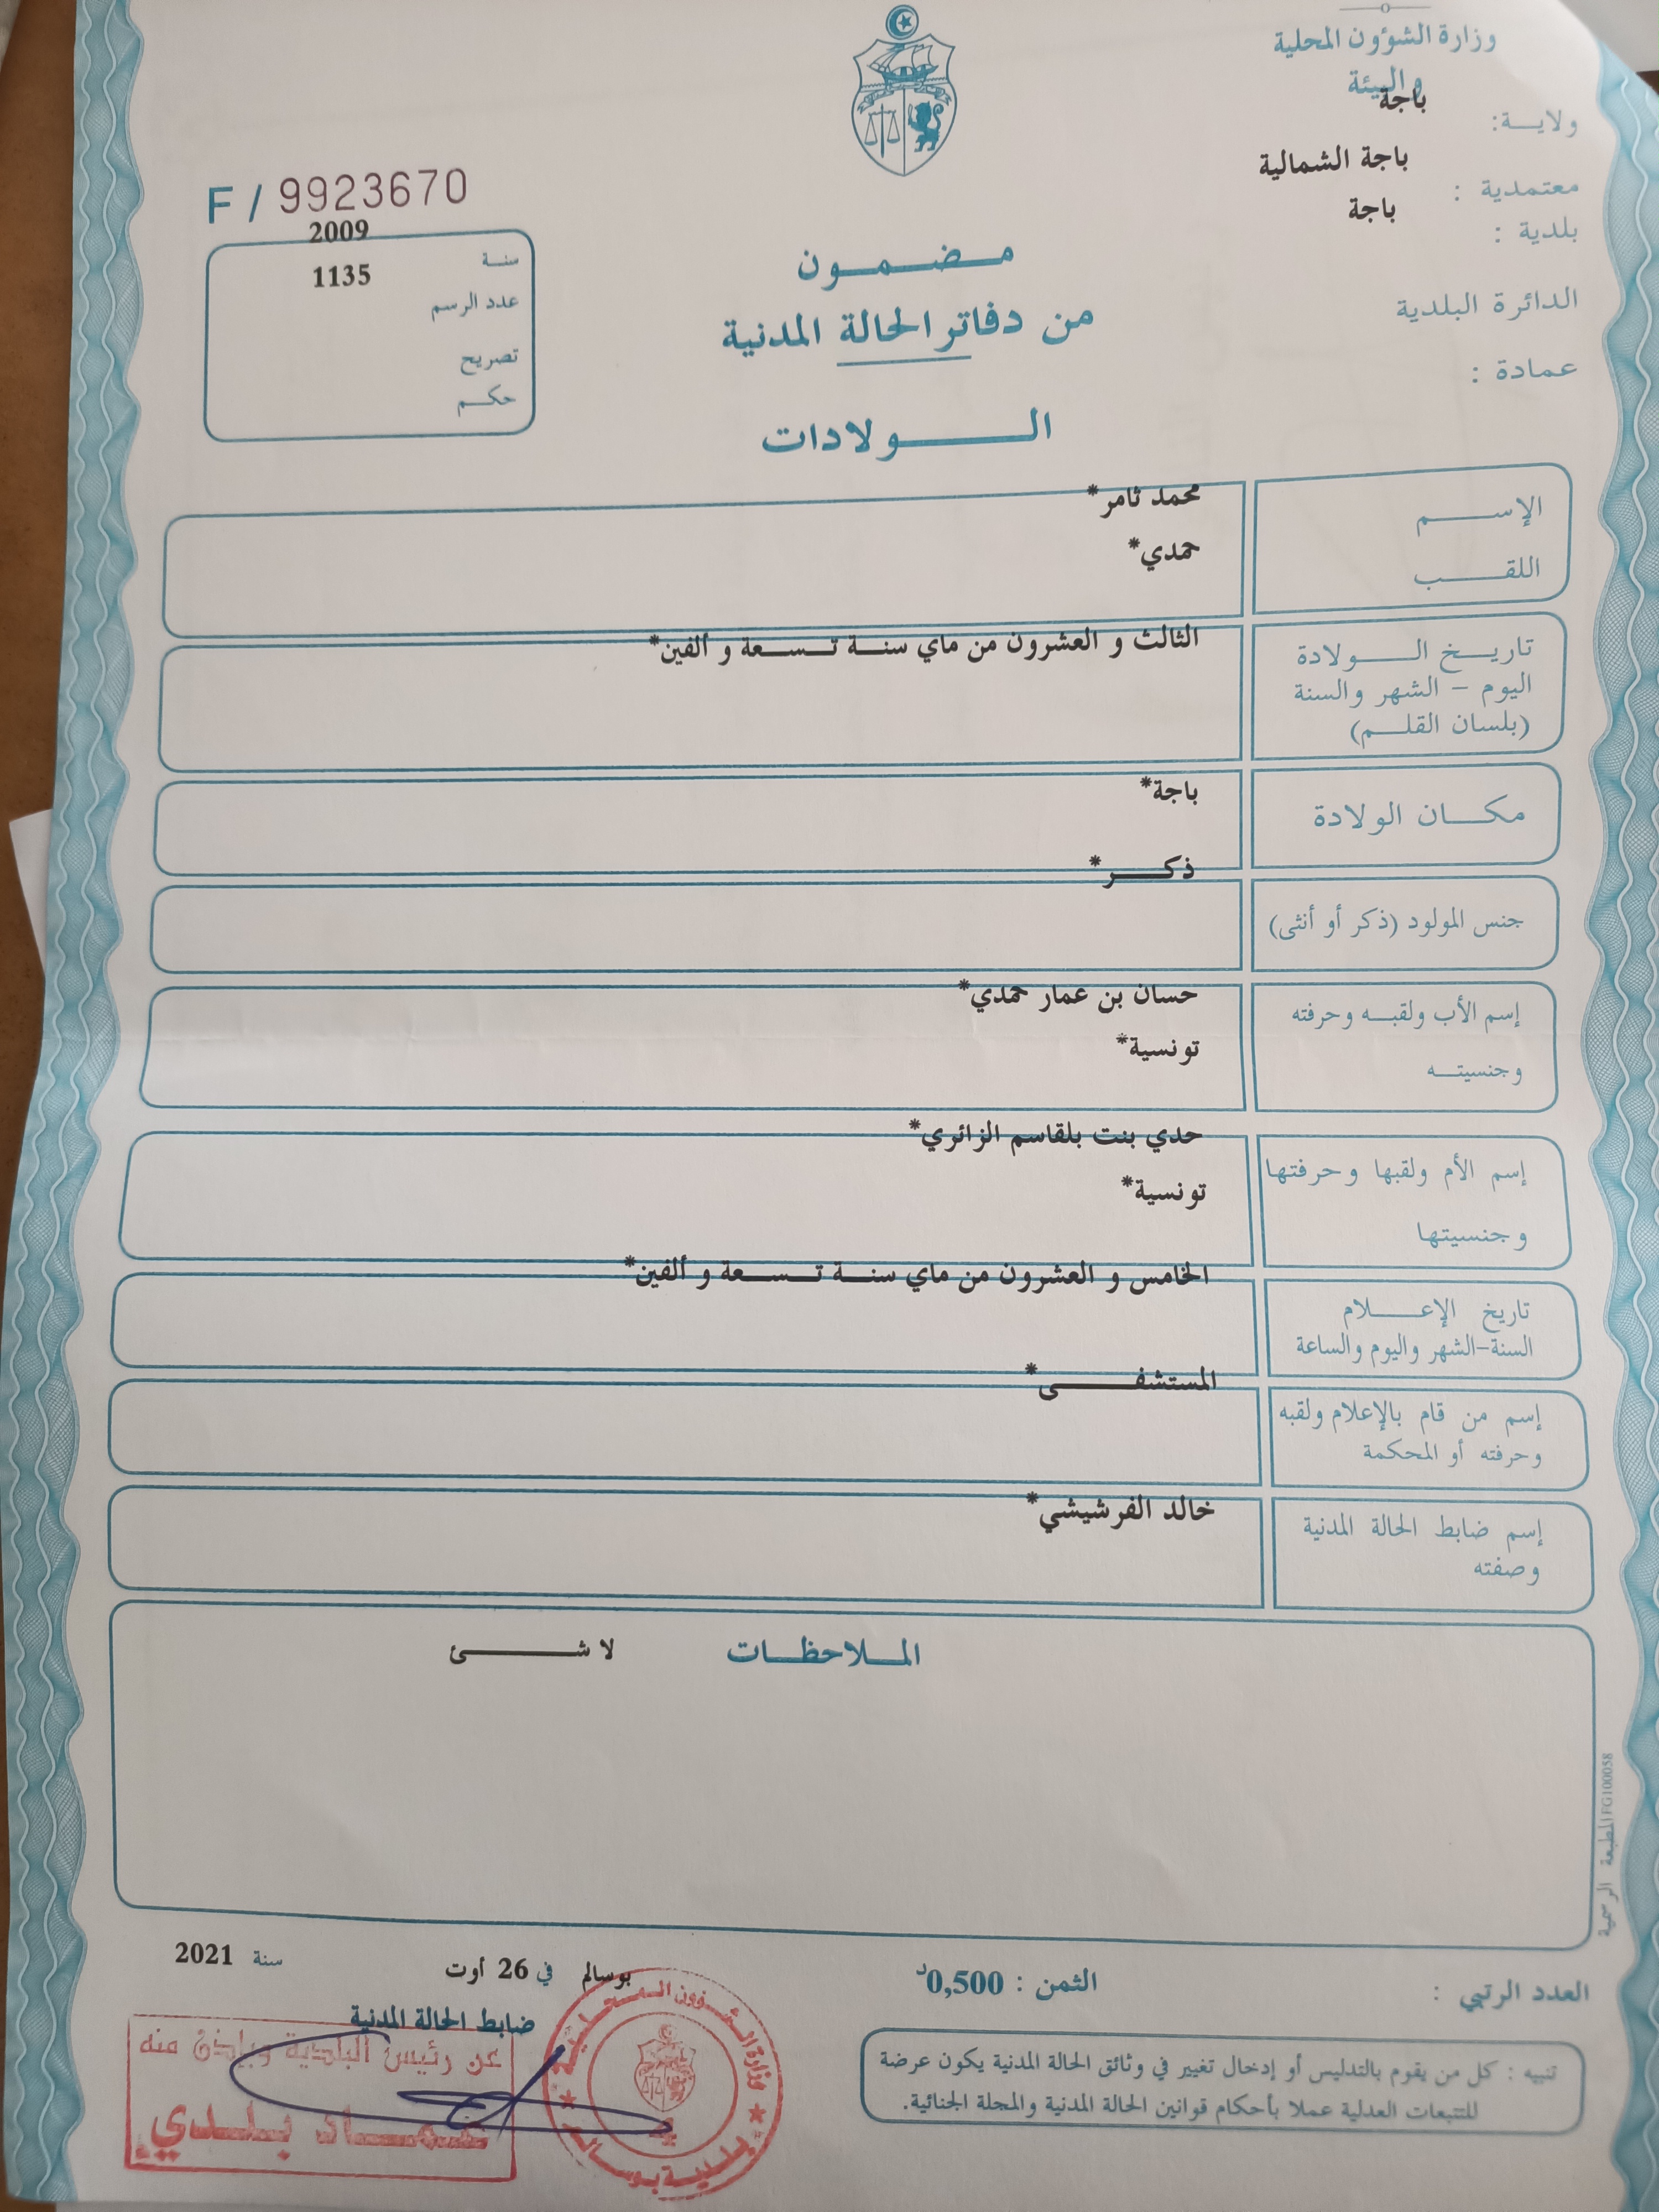 وزارة الشؤون المحلية
والبيئة
ولايـــة: باجة
معتمدية : باجة الشمالية
بلدية : باجة
الدائرة البلدية
عمادة :
F / 9923670
سنة 2009
عدد الرسم 1135
تصريح
حكم
مضمون
من دفاتر الحالة المدنية
الولادات
الإسم محمد ثامر*
اللقب حمدي*
تاريخ الولادة الثالث و العشرون من ماي سنة تسعة و ألفين*
اليوم – الشهر والسنة
(بلسان القلم)
مكان الولادة باجة*
جنس المولود (ذكر أو أنثى) ذكر*
إسم الأب ولقبه وحرفته حسان بن عمار حمدي*
وجنسيته تونسية*
إسم الأم ولقبها وحرفتها حدي بنت بلقاسم الزائري*
وجنسيتها تونسية*
تاريخ الإعلام الخامس و العشرون من ماي سنة تسعة و ألفين*
السنة-الشهر واليوم والساعة
إسم من قام بالإعلام ولقبه المستشفى*
وحرفته أو المحكمة
إسم ضابط الحالة المدنية خالد الفرشيشي*
وصفته
الملاحظات لا شئ
المطبعة الرسمية FG100058
العدد الرتبي :
الثمن : 0,500د
بوسالم في 26 أوت سنة 2021
ضابط الحالة المدنية
عن رئيس البلدية وبإذن منه
بلدي
وزارة الشؤون المحلية
بلدية بوسالم
تنبيه : كل من يقوم بالتدليس أو إدخال تغيير في وثائق الحالة المدنية يكون عرضة
للتتبعات العدلية عملا بأحكام قوانين الحالة المدنية والمجلة الجنائية.